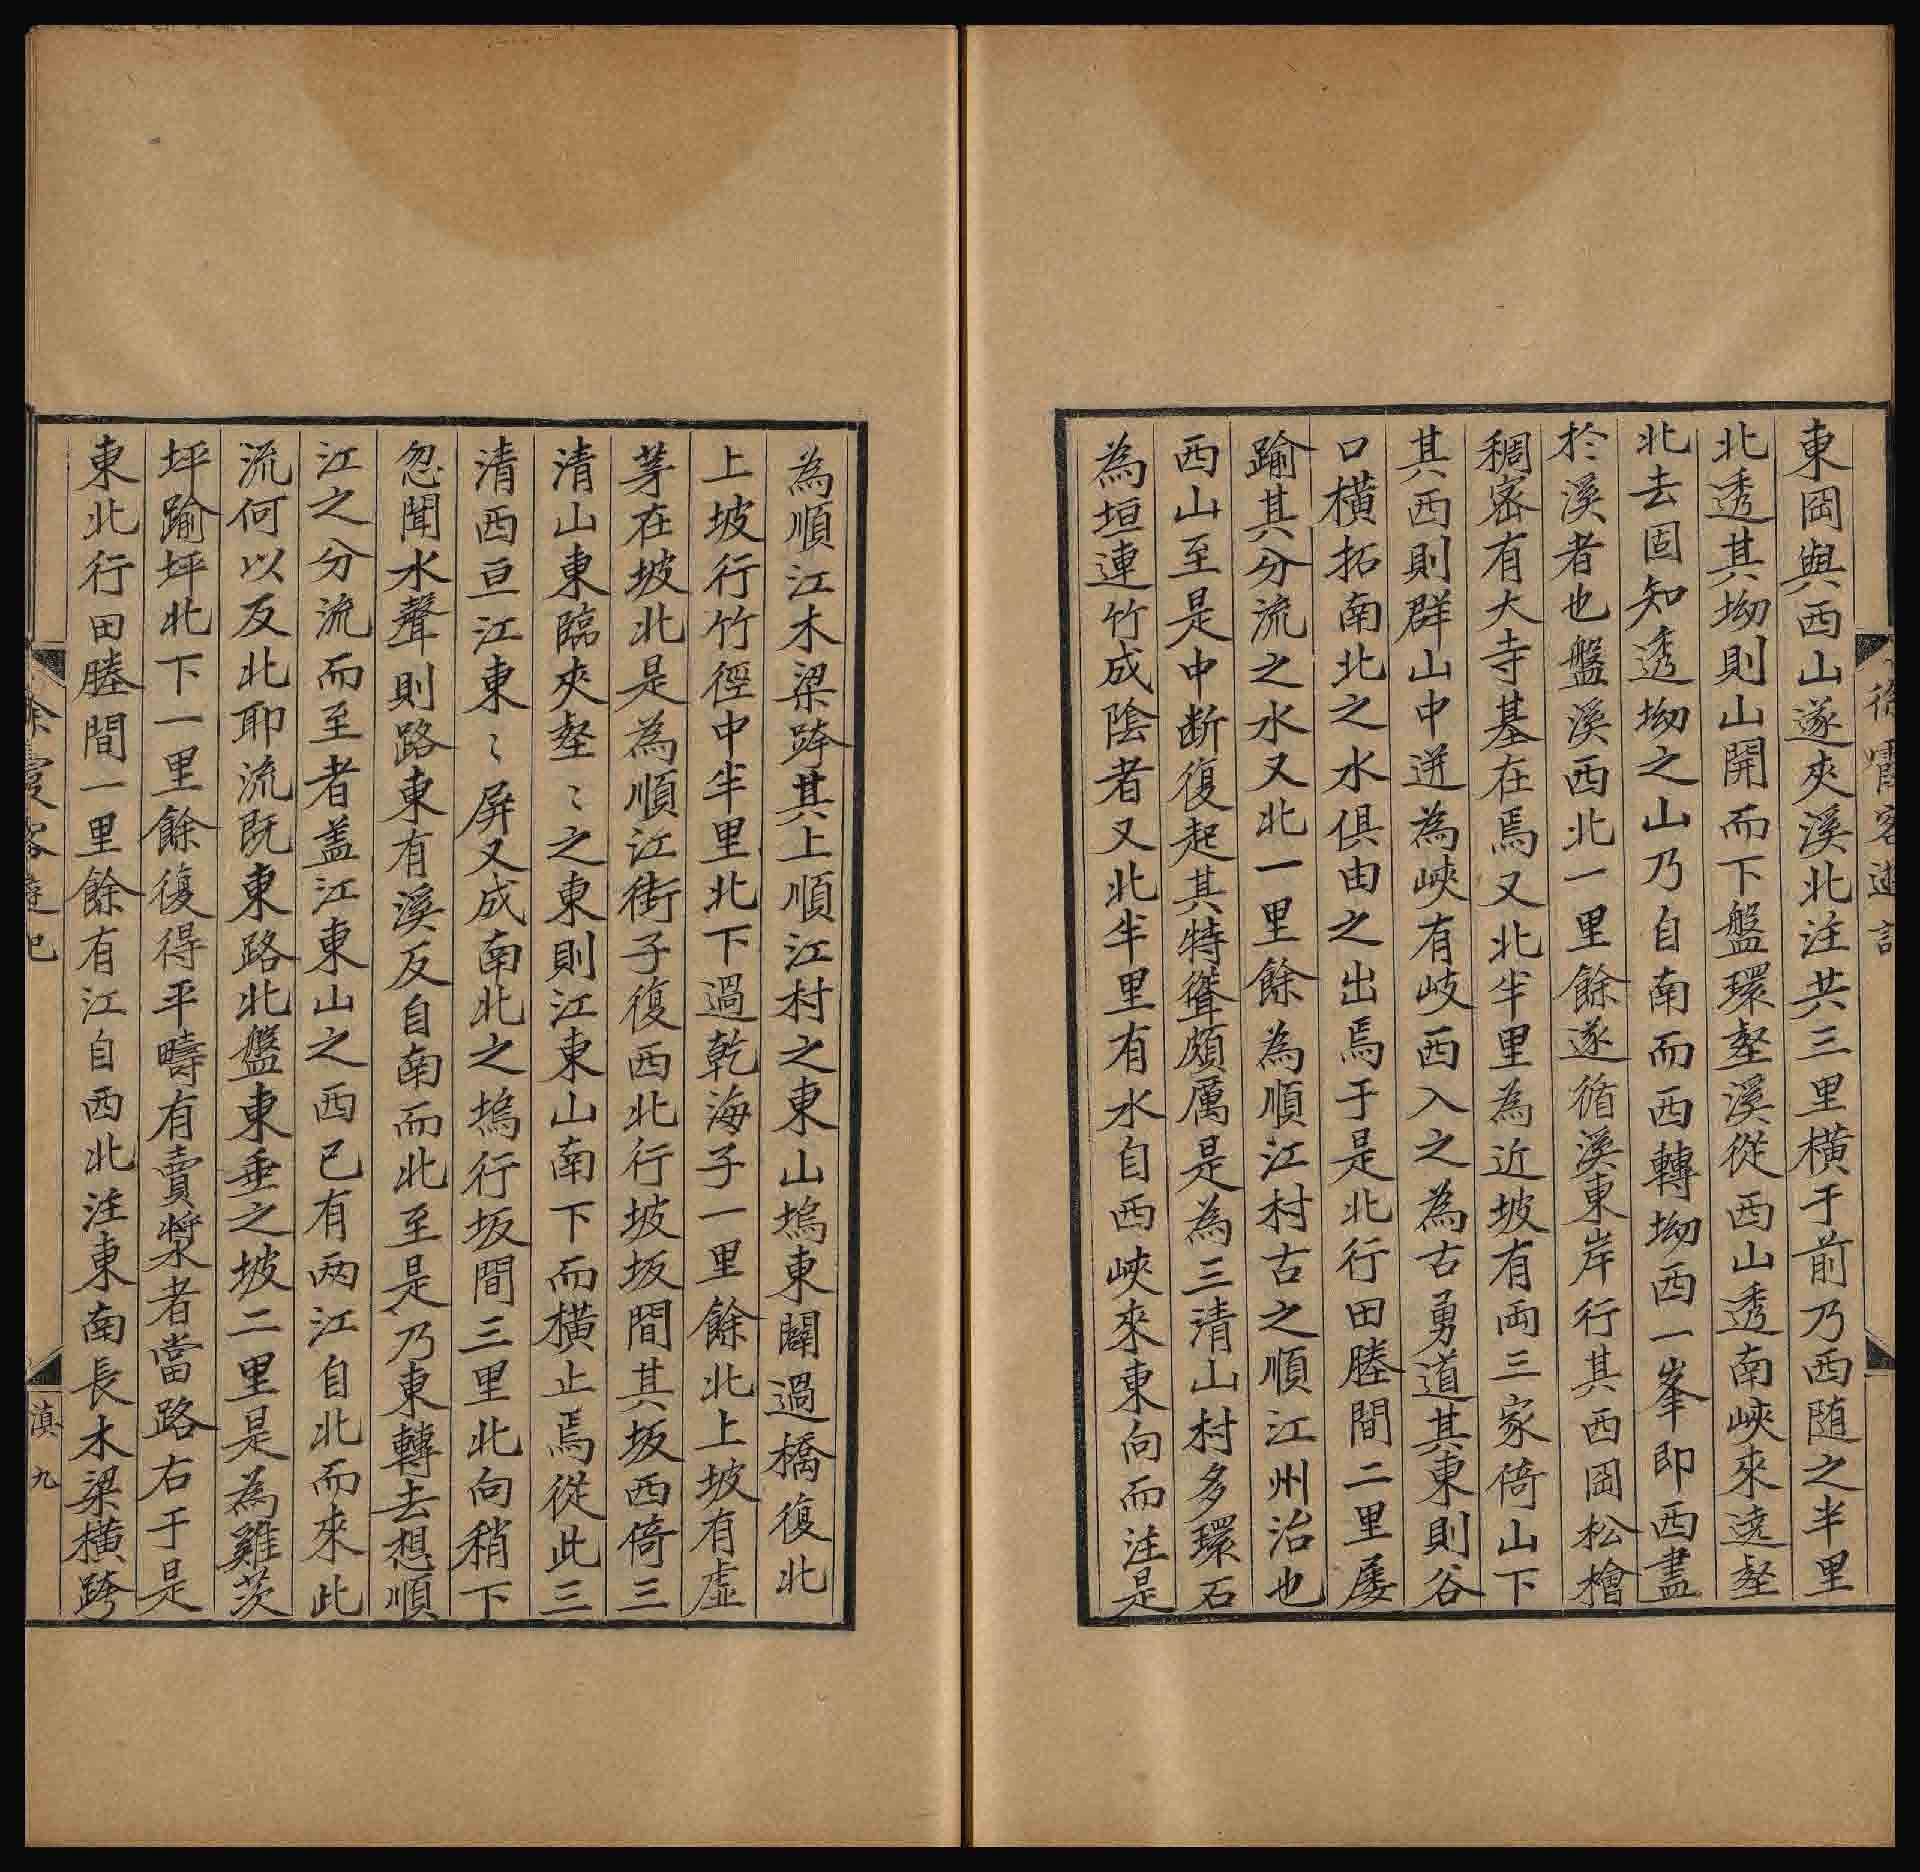 東岡與西山遂夾溪北注共三里橫于前乃西随之半里
北透其坳則山開而下盤環壑溪從西山透南峽來遶壑
北去固知透坳之山乃自南而西轉坳西一峯即西盡
於溪者也盤溪西北一里餘遂循溪東岸行其西岡松檜
稠密有大寺基在焉又北半里為近坡有両三家倚山下
其西則群山中迸為峽有岐西入之為古勇道其東則谷
口橫拓南北之水俱由之出焉于是北行田塍間二里屡
踰其分流之水又北一里餘為順江村古之順江州治也
西山至是中断復起其特聳頗厲是為三清山村多環石
為垣連竹成陰者又北半里有水自西峽來東向而注是
徐霞客遊記
為順江木梁跨其上順江村之東山塢東闢過橋復北
上坡行竹徑中半里北下過乾海子一里餘北上坡有虛
茅在坡北是為順江街子復西北行坡坂間其坂西倚三
清山東臨夾壑〻之東則江東山南下而橫止焉從此三
清西亘江東〻屏又成南北之塢行坂間三里北向稍下
忽聞水聲則路東有溪反自南而北至是乃東轉去想順
江之分流而至者盖江東山之西已有两江自北而來此
流何以反北耶流既東路北盤東垂之坡二里是為雞茨
坪踰坪北下一里餘復得平疇有賣漿者當路右于是
東北行田塍間一里餘有江自西北注東南長木梁橫跨
徐霞客遊記
滇九